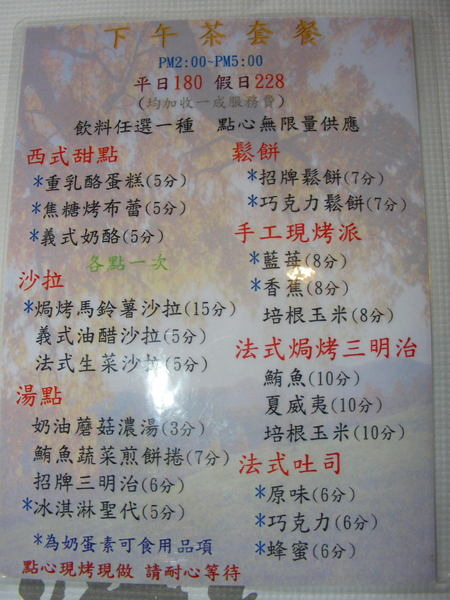 下午茶套餐
PM2:00~PM5:00
平日180 假日228
(均加收一成服務費)
飲料任選一種 點心無限量供應
西式甜點
*重乳酪蛋糕(5分)
*焦糖烤布蕾(5分)
*義式奶酪(5分)
各點一次
沙拉
*焗烤馬鈴薯沙拉(15分)
義式油醋沙拉(5分)
法式生菜沙拉(5分)
湯點
奶油蘑菇濃湯(3分)
鮪魚蔬菜煎餅捲(7分)
招牌三明治(6分)
*冰淇淋聖代(5分)
*為奶蛋素可食用品項
點心現烤現做 請耐心等待
鬆餅
*招牌鬆餅(7分)
*巧克力鬆餅(7分)
手工現烤派
*藍莓(8分)
*香蕉(8分)
培根玉米(8分)
法式焗烤三明治
鮪魚(10分)
夏威夷(10分)
培根玉米(10分)
法式吐司
*原味(6分)
*巧克力(6分)
*蜂蜜(6分)